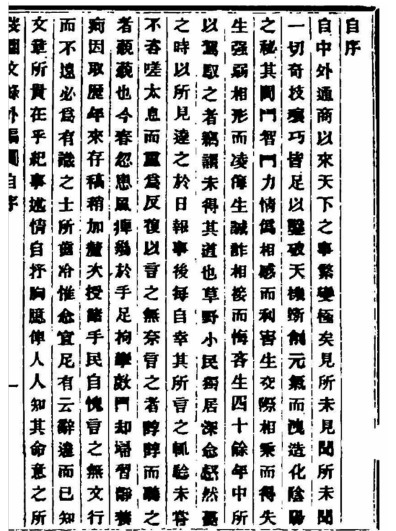 自序
自中外通商以來天下之事繁變極矣見所未見聞所未聞
一切奇技瓌巧皆足以鑿破天機斲削元氣而洩造化陰陽
之秘其間鬥智鬥力情僞相感而利害生交際相乘而得失
生强弱相形而凌侮生誠詐相接而悔吝生四十餘年中所
以駕馭之者竊謂未得其道也草野小民獨居深念惄然憂
之時以所見達之於日報事後每自幸其所言之輒驗未嘗
不咨嗟太息而重爲反復以言之無奈言之者諄諄而聽之
者藐藐也今春忽患風痺於手足拘攣門却埽習靜養
疴因取歷年來存稿稍加釐次授諸手民自愧言之無文行
而不遠必爲有識之士所齒冷惟念宣尼有云辭達而已知
文章所貴在乎紀事述情自抒胸臆俾人人知其命意之所
弢園文錄外編自序 一